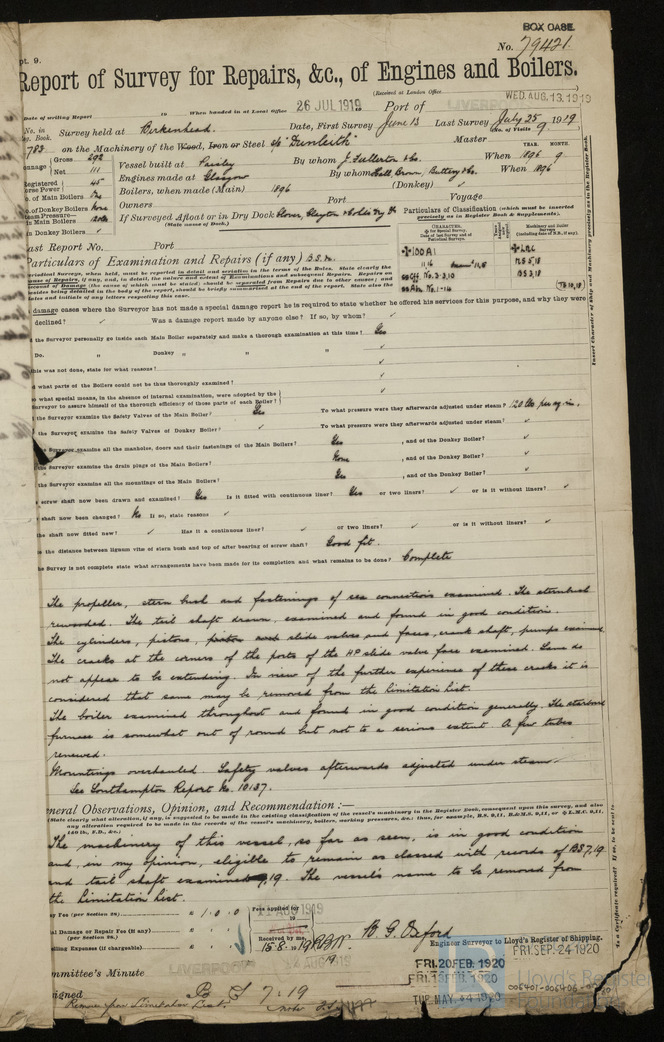 BOX CASE.
pt. 9.
No. 79421
Report of Survey for Repairs, &c., of Engines and Boilers.
(Received at London Office
WED. AUG. 13 1919
Date of writing Report
When handed in at Local Office 26 JUL 1919 Port of LIVERPOOL
No. in
Survey held at Birkenhead. Date, First Survey June 13 Last Survey July 25 1919
o. Book.
(No. of Visits 9.
783 on the Machinery of the Wood, Iron or Steel "Dunleith" Master
Gross 292
Net 111
Vessel built at Paisley By whom J. Fullerton & Co. When 1896 9
YEAR. MONTH.
Registered
Horse Power 45
Engines made at Glasgow By whom Hall Brown, Buttery & Co. When 1896
o. of Main Boilers One
Boilers, when made (Main) 1896 (Donkey) ✓
o. of Donkey Boilers None
Owners Port Voyage
If Surveyed Afloat or in Dry Dock
(State name of Dock.)
n Donkey Boilers ✓
Particulars of Classification (which must be inserted
precisely as in Register Book & Supplements).
ast Report No. Port
+100A1
+LMC
BS 5,18
Particulars of Examination and Repairs (if any) B.S.M.
damage cases where the Surveyor has not made a special damage report he is required to state whether he offered his services for this purpose, and why they were
declined? ✓ Was a damage report made by anyone else? If so, by whom? ✓
the Surveyor personally go inside each Main Boiler separately and make a thorough examination at this time? Yes
Do. „ Donkey „ „ „ ✓
this was not done, state for what reasons? ✓
d what parts of the Boilers could not be thus thoroughly examined? ✓
so what special means, in the absence of internal examination, were adopted by the
Surveyor to assure himself of the thorough efficiency of those parts of each Boiler? ✓
the Surveyor examine the Safety Valves of the Main Boiler? Yes To what pressure were they afterwards adjusted under steam? 120 lbs. per sq in.
the Surveyor examine the Safety Valves of Donkey Boiler? ✓ To what pressure were they afterwards adjusted under steam? ✓
the Surveyor examine all the manholes, doors and their fastenings of the Main Boilers? Yes , and of the Donkey Boiler? ✓
the Surveyor examine the drain plugs of the Main Boilers? None , and of the Donkey Boiler? ✓
the Surveyor examine all the mountings of the Main Boilers? Yes , and of the Donkey Boiler? ✓
screw shaft now been drawn and examined? Yes Is it fitted with continuous liner? Yes or two liners? ✓ or is it without liners? ✓
shaft now been changed? No If so, state reasons ✓
the shaft now fitted new? ✓ Has it a continuous liner? ✓ or two liners? ✓ or is it without liners? ✓
is the distance between lignum vitæ of stern bush and top of after bearing of screw shaft? Good fit.
he Survey is not complete state what arrangements have been made for its completion and what remains to be done? Complete
The propeller, stern bush and fastenings of sea connections examined. The sternbush
rewooded. The tail shaft drawn, examined and found in good condition.
The cylinders, pistons, slide valves and faces, crank shaft, pumps examined
The cracks at the corners of the ports of the HP slide valve face examined. Same do
not appear to be extending. In view of the further experience of these cracks it is
considered that same may be removed from the limitation list.
The boiler examined throughout and found in good condition generally. The starboard
furnace is somewhat out of round but not to a serious extent. A few tubes
renewed.
Mountings overhauled. Safety valves afterwards adjusted under steam
See Southampton Report No. 10137.
neral Observations, Opinion, and Recommendation :—
(State clearly what alteration, if any, is suggested to be made in the existing classification of the vessel's machinery in the Register Book, consequent upon this survey, and also
any alteration required to be made in the records of the vessel's machinery, boilers, working pressures, &c.; thus, for example, B.S. 9,11, B.&M.S. 9,11, or ✠ L.M.C. 9,11,
140 lb., F.D., &c.)
The machinery of this vessel, so far as seen, is in good condition
and, in my opinion, eligible to remain as classed with records of BS 7,19.
and tail shaft examined 7,19. The vessel's name to be removed from
the limitation list.
y Fee (per Section 28) £ 1 : 0 : 0
Fees applied for
11 AUG 1919
al Damage or Repair Fee (if any) £
(per Section 28.)
Received by me,
15.8.1919
velling Expenses (if chargeable) £
W. G. Oxford
Engineer Surveyor to Lloyd's Register of Shipping.
mmittee's Minute
LIVERPOOL 12 AUG 1919
FRI. 20 FEB. 1920
FRI. SEP. 24 1920
FRI. 13 FEB. 1920
TUE. MAY. 4 1920
signed B S 7:19
Remove from Limitation List.
006401-006406-0
Lloyd's Register
Foundation
Insert Character of Ship and Machinery precisely as in the Register Book.
Is a Certificate required? If so, to be sent to